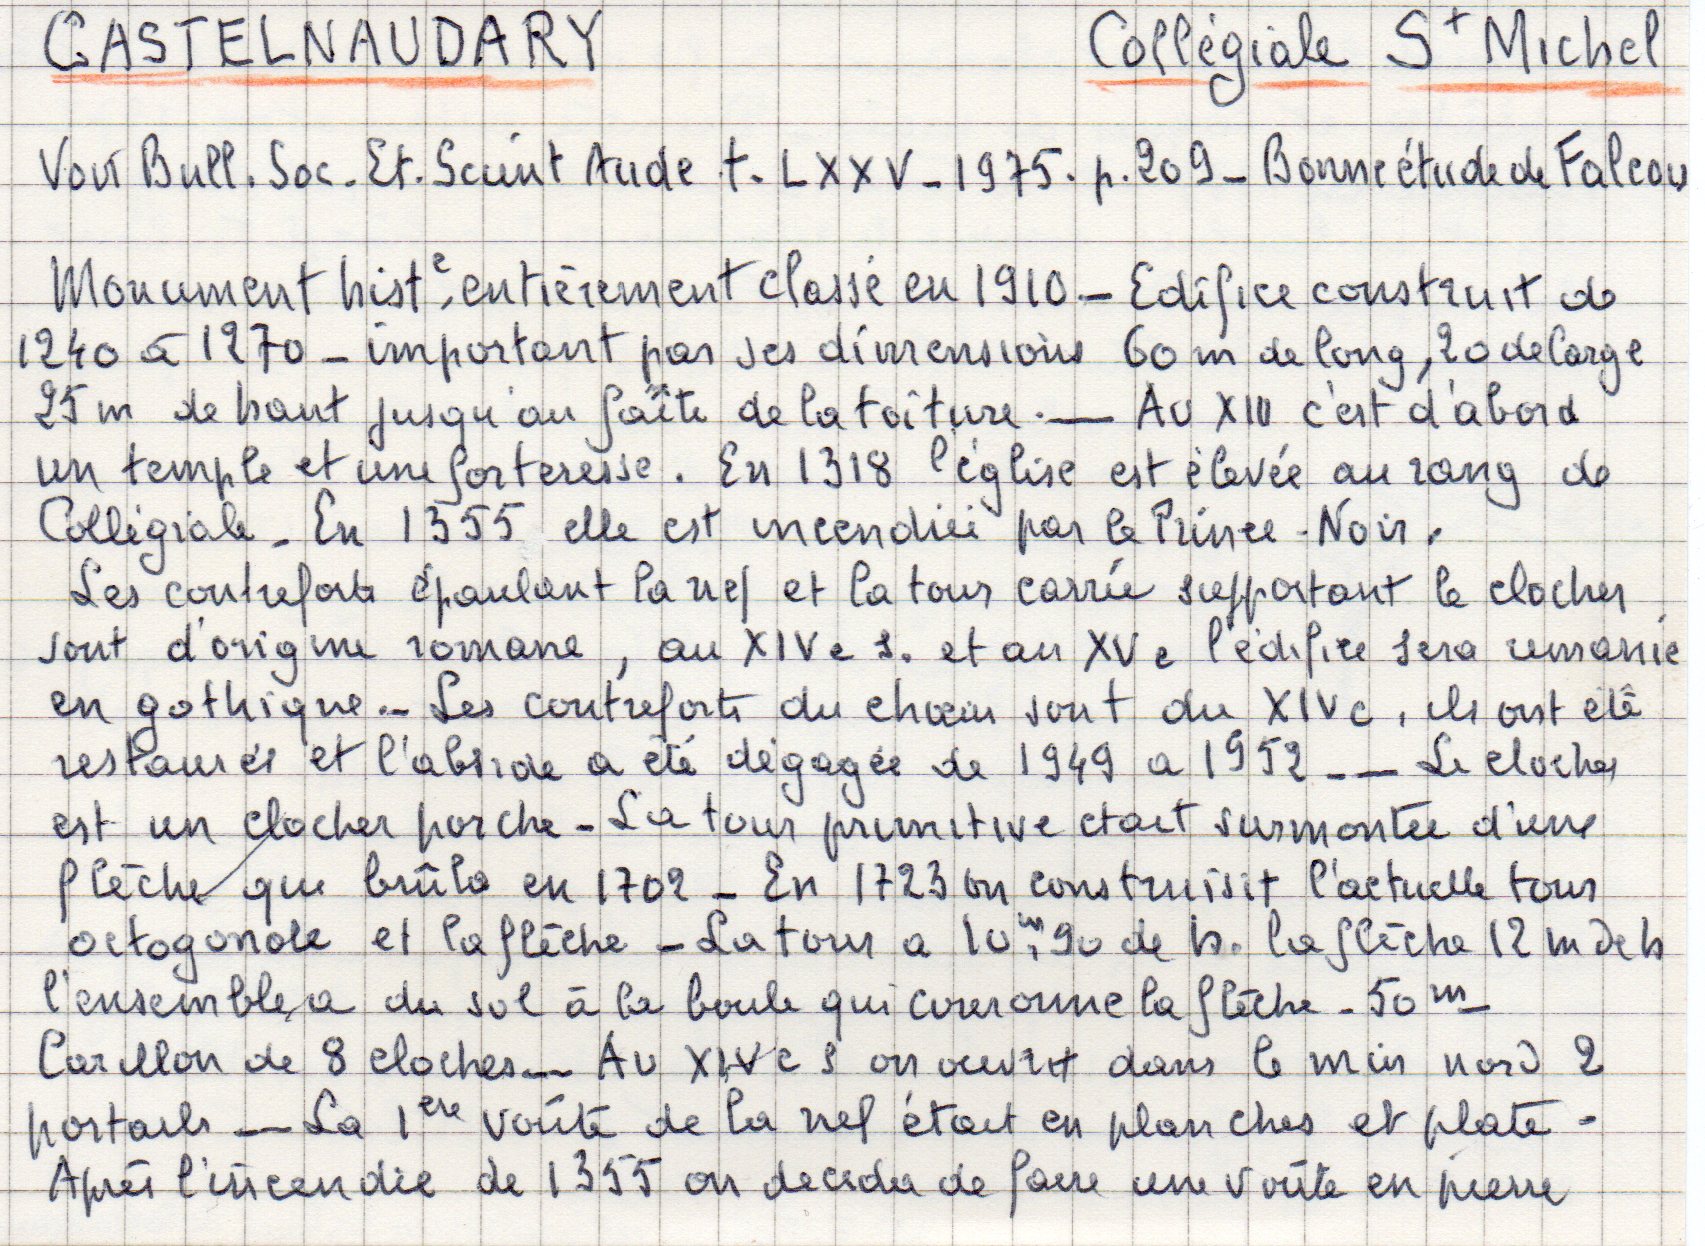 CASTELNAUDARY Collégiale St Michel
Voir Bull. Soc. Et. Scient Aude t. LXXV - 1975. p. 209 - Bonne étude de Falcou
Monument histe, entièrement classé en 1910. - Edifice construit de
1240 à 1270 - important par ses dimensions 60 m de long, 20 de large
25 m de haut jusqu'au faîte de la toîture. — Au XIII c'est d'abord
un temple et une forteresse. En 1318 l'église est élevée au rang de
Collégiale - En 1355 elle est incendiée par le Prince-Noir.
Les contreforts épaulant la nef et la tour carrée supportant le clocher
sont d'origine romane, au XIVe s. et au XVe l'édifice sera remanié
en gothique. - Les contreforts du chœur sont du XIVe, ils ont été
restaurés et l'abside a été dégagée de 1949 a 1952 - — Le clocher
est un clocher porche - La tour primitive était surmontée d'une
flèche qui brûla en 1702 - En 1723 on construisit l'actuelle tour
octogonale et la flèche - La tour a 10m,90 de h. la flèche 12 m de h
l'ensemble, a du sol à la boule qui couronne la flèche - 50 m -
Carillon de 8 cloches — Au XIVe s on ouvrit dans le mur nord 2
portails — La 1ere voûte de la nef était en planches et plate -
Après l'incendie de 1355 on décida de faire une voûte en pierre